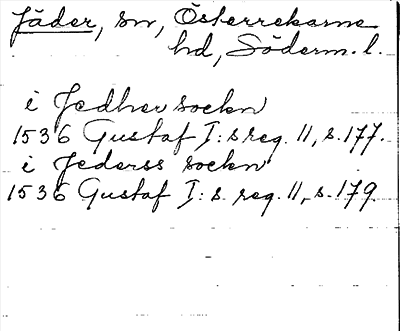 Jäder, sn, Österrekarne
hd, Söderm. l.
i Jedher sockn
1536 Gustaf I:s reg. 11, s. 177.
i Jederss sockn
1536 Gustaf I:s reg. 11, s. 179.